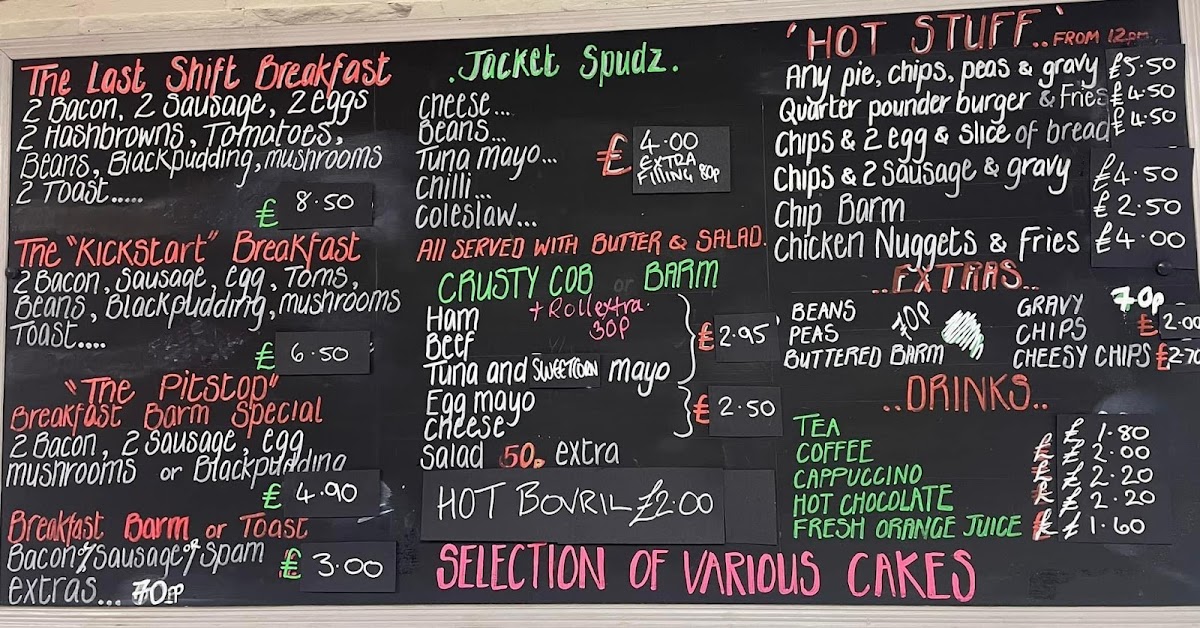 The Last Shift Breakfast
2 Bacon, 2 Sausage, 2 eggs
2 Hashbrowns, Tomatoes,
Beans, Blackpudding, mushrooms
2 Toast.....
£ 8.50
The "Kickstart" Breakfast
2 Bacon, Sausage, egg, Toms,
Beans, Blackpudding, mushrooms
Toast....
£ 6.50
"The Pitstop"
Breakfast Barm Special
2 Bacon, 2 Sausage, egg
mushrooms or Blackpudding
£ 4.90
Breakfast Barm or Toast
Bacon/Sausage/Spam
£ 3.00
extras... 70P
.Jacket Spudz.
cheese...
Beans...
Tuna mayo...
Chilli...
coleslaw...
£ 4.00
EXTRA
FILLING 80p
All SERVED WITH BUTTER & SALAD.
CRUSTY COB or BARM
+ Roll extra.
30P
Ham
Beef
Tuna and SWEETCORN mayo
£ 2.95
Egg mayo
cheese
£ 2.50
salad 50p extra
HOT BOVRIL £2.00
SELECTION OF VARIOUS CAKES
'HOT STUFF'.. FROM 12pm
Any pie, chips, peas & gravy £5.50
Quarter pounder burger & Fries £4.50
Chips & 2 egg & slice of bread £4.50
Chips & 2 sausage & gravy £4.50
Chip Barm £2.50
Chicken Nuggets & Fries £4.00
..EXTRAS..
BEANS
PEAS
BUTTERED BARM
70P
GRAVY 70p
CHIPS £2.00
CHEESY CHIPS £2.70
..DRINKS..
TEA £1.80
COFFEE £2.00
CAPPUCCINO £2.20
HOT CHOCOLATE £2.20
FRESH ORANGE JUICE £1.60